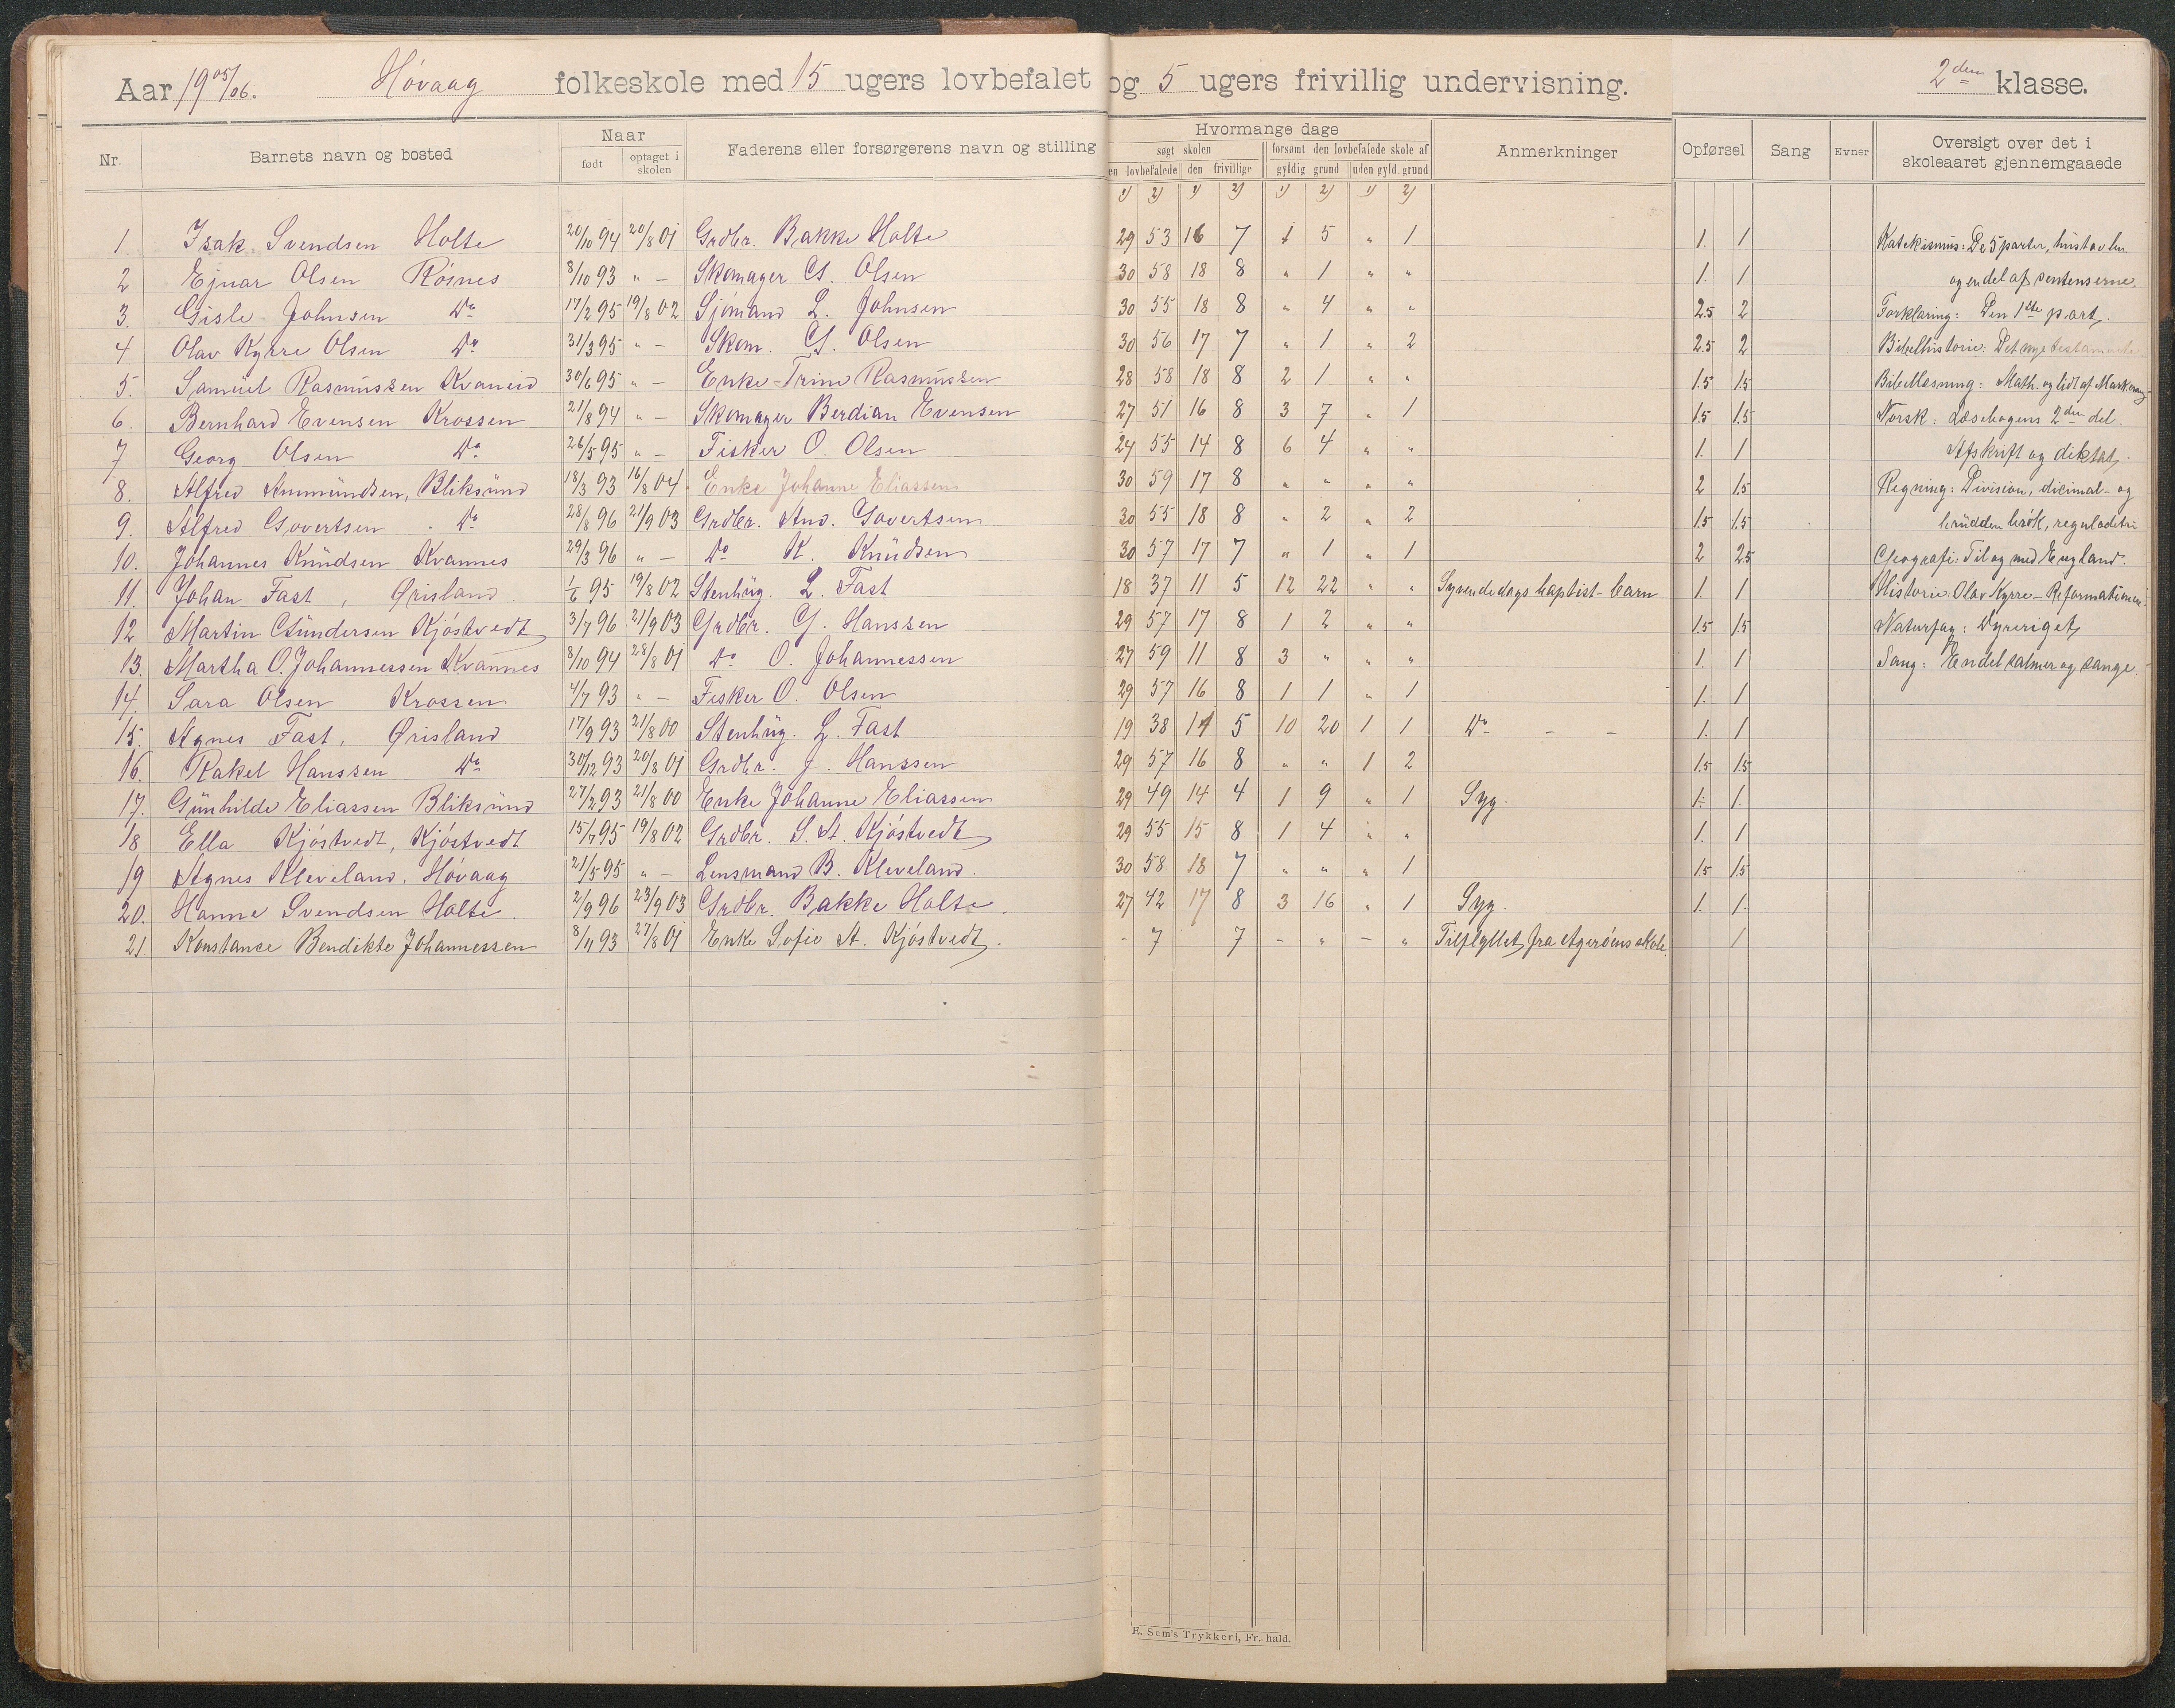 Aar 1905/06. Høvaag folkeskole med 15 ugers lovbefalet og 5 ugers frivillig undervisning. 2den klasse.
Nr. Barnets navn og bosted Naar født optaget i skolen Faderens eller forsørgerens navn og stilling
Hvormange dage
søgt skolen forsømt den lovbefalede skole af
en lovbefalede den frivillige gyldig grund uden gyld. grund
Anmerkninger Opførsel Sang Evner Oversigt over det i skoleaaret gjennemgaaede
1) 2) 1) 2) 1) 2) 1) 2)
1. Isak Svendsen Holte 20/10 94 20/8 01 Grdbr. Bakke Holte 29 53 16 7 1 5 " 1 1. 1 Katekismus: De 5 parter, hustavlen
2 Ejnar Olsen Røsnes 8/10 93 " — Skomager G. Olsen 30 58 18 8 " 1 " " 1. 1 og en del af sentenserne.
3. Gisle Johnsen Do 17/2 95 19/8 02 Sjømand L. Johnsen 30 55 18 8 " 4 " " 2.5 2 Forklaring: Den 1ste part.
4 Olav Kyrre Olsen Do 31/3 95 " — Skom. G. Olsen 30 56 17 7 " 1 " 2 2.5 2 Bibelhistorie: Det nye testamente
5. Samuel Rasmussen Kvaneid 30/6 95 " — Enke Trine Rasmussen 28 58 18 8 2 1 " " 1.5 1.5 Bibellæsning: Math. og lidt af Mark.
6. Bernhard Evensen Krossen 21/8 94 " — Skomager Berdian Evensen 27 51 16 8 3 7 " 1 1.5 1.5 Norsk: Læsebogens 2den del.
7 Georg Olsen Do 26/5 95 " — Fisker O. Olsen 24 55 14 8 6 4 " " 1. 1 Afskrift og diktat.
8. Alfred Ammundsen, Bliksund 18/3 93 16/8 04 Enke Johanne Eliassen 30 59 17 8 " " " " 2 1.5 Regning: Division, dicimal- og
9. Alfred Govertsen Do 28/8 96 21/9 03 Grdbr. And. Govertsen 30 55 18 8 " 2 " 2 1.5 1.5 brudden brøk, reguladetri
10. Johannes Knudsen Kvannes 29/3 96 " — Do K. Knudsen 30 57 17 7 " 1 " 1 2 2.5 Geografi: Til og med England.
11. Johan Fast, Ørisland 1/6 95 19/8 02 Stenhug. L. Fast 18 37 11 5 12 22 " " Syvendedags baptist-barn 1. 1 Historie: Olav Kyrre - Reformationen.
12 Martin Gundersen Kjøstvedt 3/7 96 21/9 03 Grdbr. G. Hanssen 29 57 17 8 1 2 " " 1.5 1.5 Naturfag: Dyreriget
13. Martha O. Johannessen Kvannes 8/10 94 28/8 01 Do O. Johannessen 27 59 11 8 3 " " " 1. 1 Sang: Endel salmer og sange.
14. Sara Olsen Krossen 4/7 93 " — Fisker O. Olsen 29 57 16 8 1 1 " 1 1. 1
15. Agnes Fast, Ørisland 17/9 93 21/8 00 Stenhug. L. Fast 19 38 14 5 10 20 1 1 Do — — 1. 1
16. Rakel Hanssen Do 30/12 93 20/8 01 Grdbr. J. Hanssen 29 57 16 8 " " 1 2 1.5 1.5
17. Gunhilde Eliassen Bliksund 27/2 93 21/8 00 Enke Johanne Eliassen 29 49 14 4 1 9 " 1 Syg. 1. 1.
18 Ella Kjøstvedt, Kjøstvedt 15/7 95 19/8 02 Grdbr. S. A. Kjøstvedt 29 55 15 8 1 4 " " 1. 1
19 Agnes Kleveland, Høvaag 21/5 95 " — Lensmand B. Kleveland. 30 58 18 7 " " " 1 1.5 1.5
20. Hanne Svendsen Holte 2/9 96 23/9 03 Grdbr. Bakke Holte 27 42 17 8 3 16 " 1 Syg. 1. 1.
21. Konstance Bendikte Johannessen 8/11 93 27/8 01 Enke Sofie A. Kjøstvedt. - 7 7 - " - " Tilflyttet fra Agerøens skole. 1
E. Sem's Trykkeri, Fr. hald.